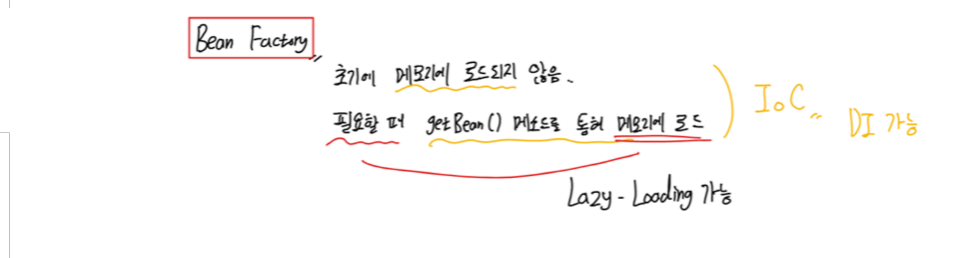 Bean Factory
초기에 메모리에 로드되지 않음.
필요할 때 getBean() 메소드로 통해 메모리에 로드
IoC
DI 가능
Lazy - Loading 가능